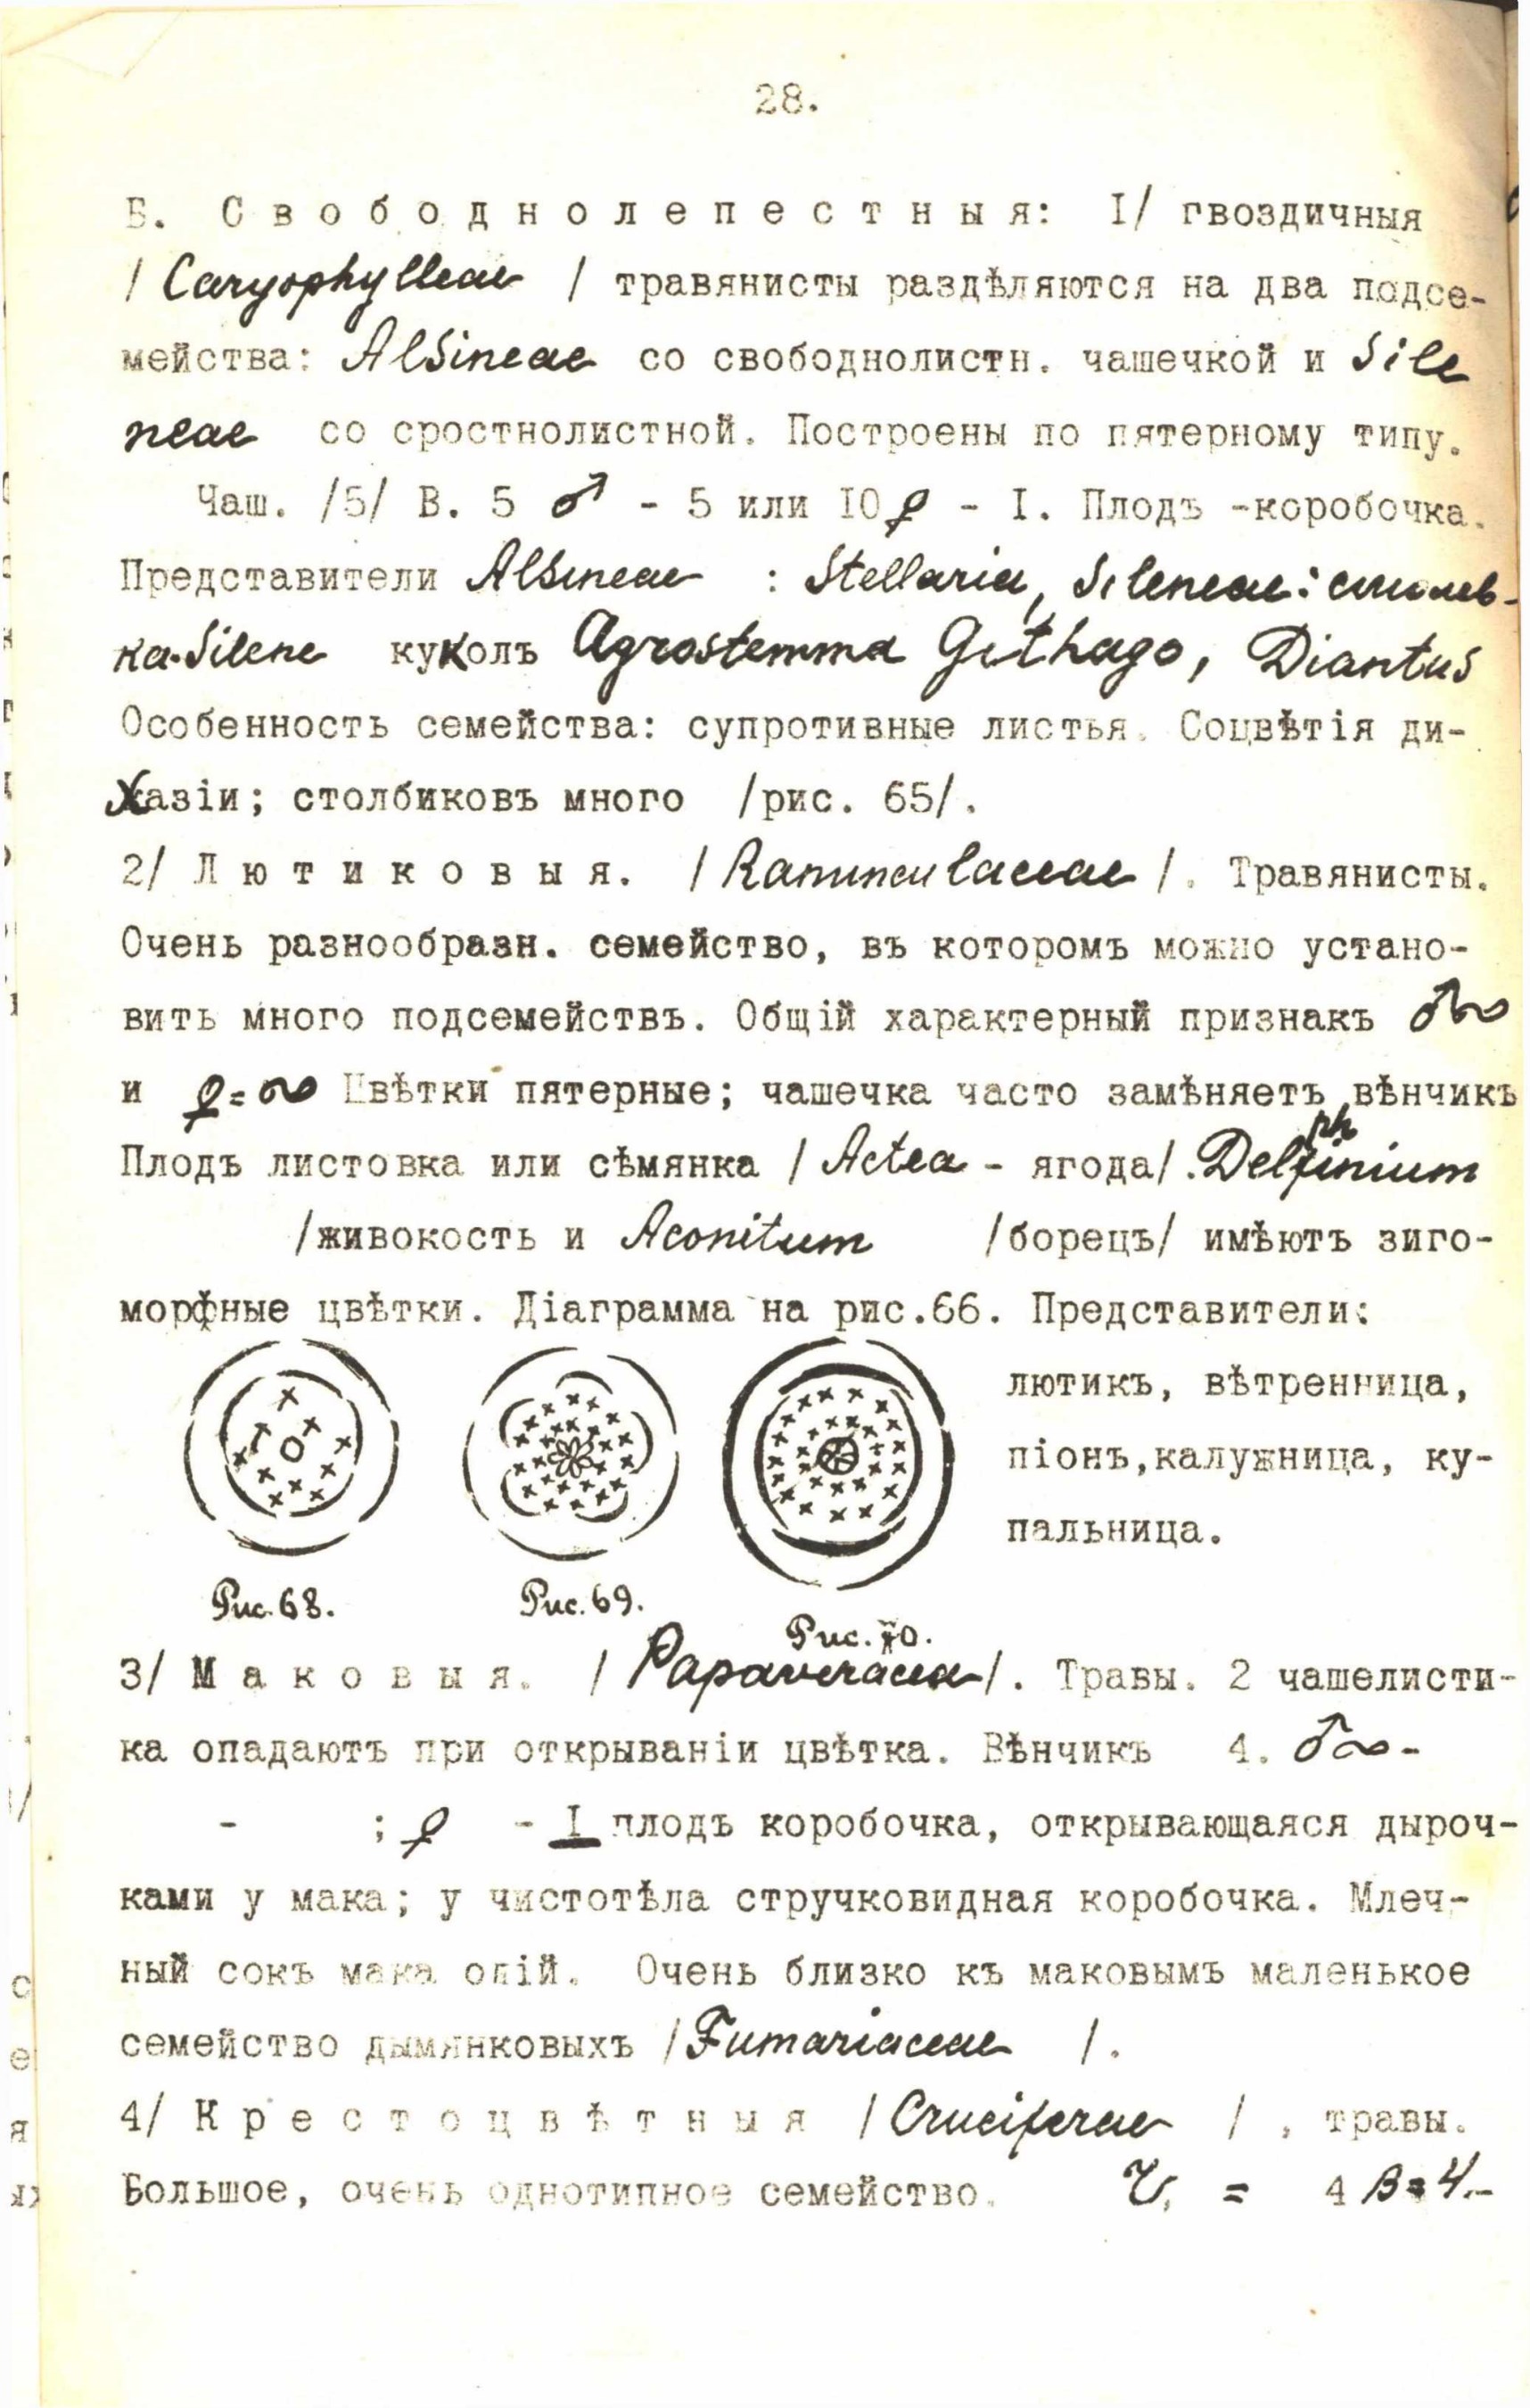 28.
Б. Свободнолепестныя: I/ гвоздичныя
/ Caryophylleae / травянисты раздѣляются на два подсе-
мейства: Alsineae со свободнолистн. чашечкой и Sile
neae со сростнолистной. Построены по пятерному типу.
Чаш. /5/ В. 5 ♂ - 5 или I0 ♀ - I. Плодъ -коробочка.
Представители Alsineae : Stellaria, Sileneae: смолев-
ка-Silene куколъ Agrostemma Githago, Diantus
Особенность семейства: супротивные листья. Соцвѣтія ди-
хазіи; столбиковъ много /рис. 65/.
2/ Лютиковыя. / Ranunculaceae /. Травянисты.
Очень разнообразн. семейство, въ которомъ можно устано-
вить много подсемействъ. Общій характерный признакъ ♂∞
и ♀=∞ Цвѣтки пятерные; чашечка часто замѣняетъ вѣнчикъ
Плодъ листовка или сѣмянка / Actea - ягода/. Delphinium
/живокость и Aconitum /борецъ/ имѣютъ зиго-
морфные цвѣтки. Діаграмма на рис.66. Представители:
лютикъ, вѣтренница,
піонъ,калужница, ку-
пальница.
Рис. 68.
Рис. 69.
Рис. 70.
3/ Маковыя. / Papaveracea /. Травы. 2 чашелисти-
ка опадаютъ при открываніи цвѣтка. Вѣнчикъ 4. ♂∞-
- ; ♀ - I плодъ коробочка, открывающаяся дыроч-
ками у мака; у чистотѣла стручковидная коробочка. Млеч-
ный сокъ мака опій. Очень близко къ маковымъ маленькое
семейство дымянковыхъ / Fumariaceae /.
4/ Крестоцвѣтныя / Cruciferae / , травы.
Большое, очень однотипное семейство. Ч. = 4 В=4.-